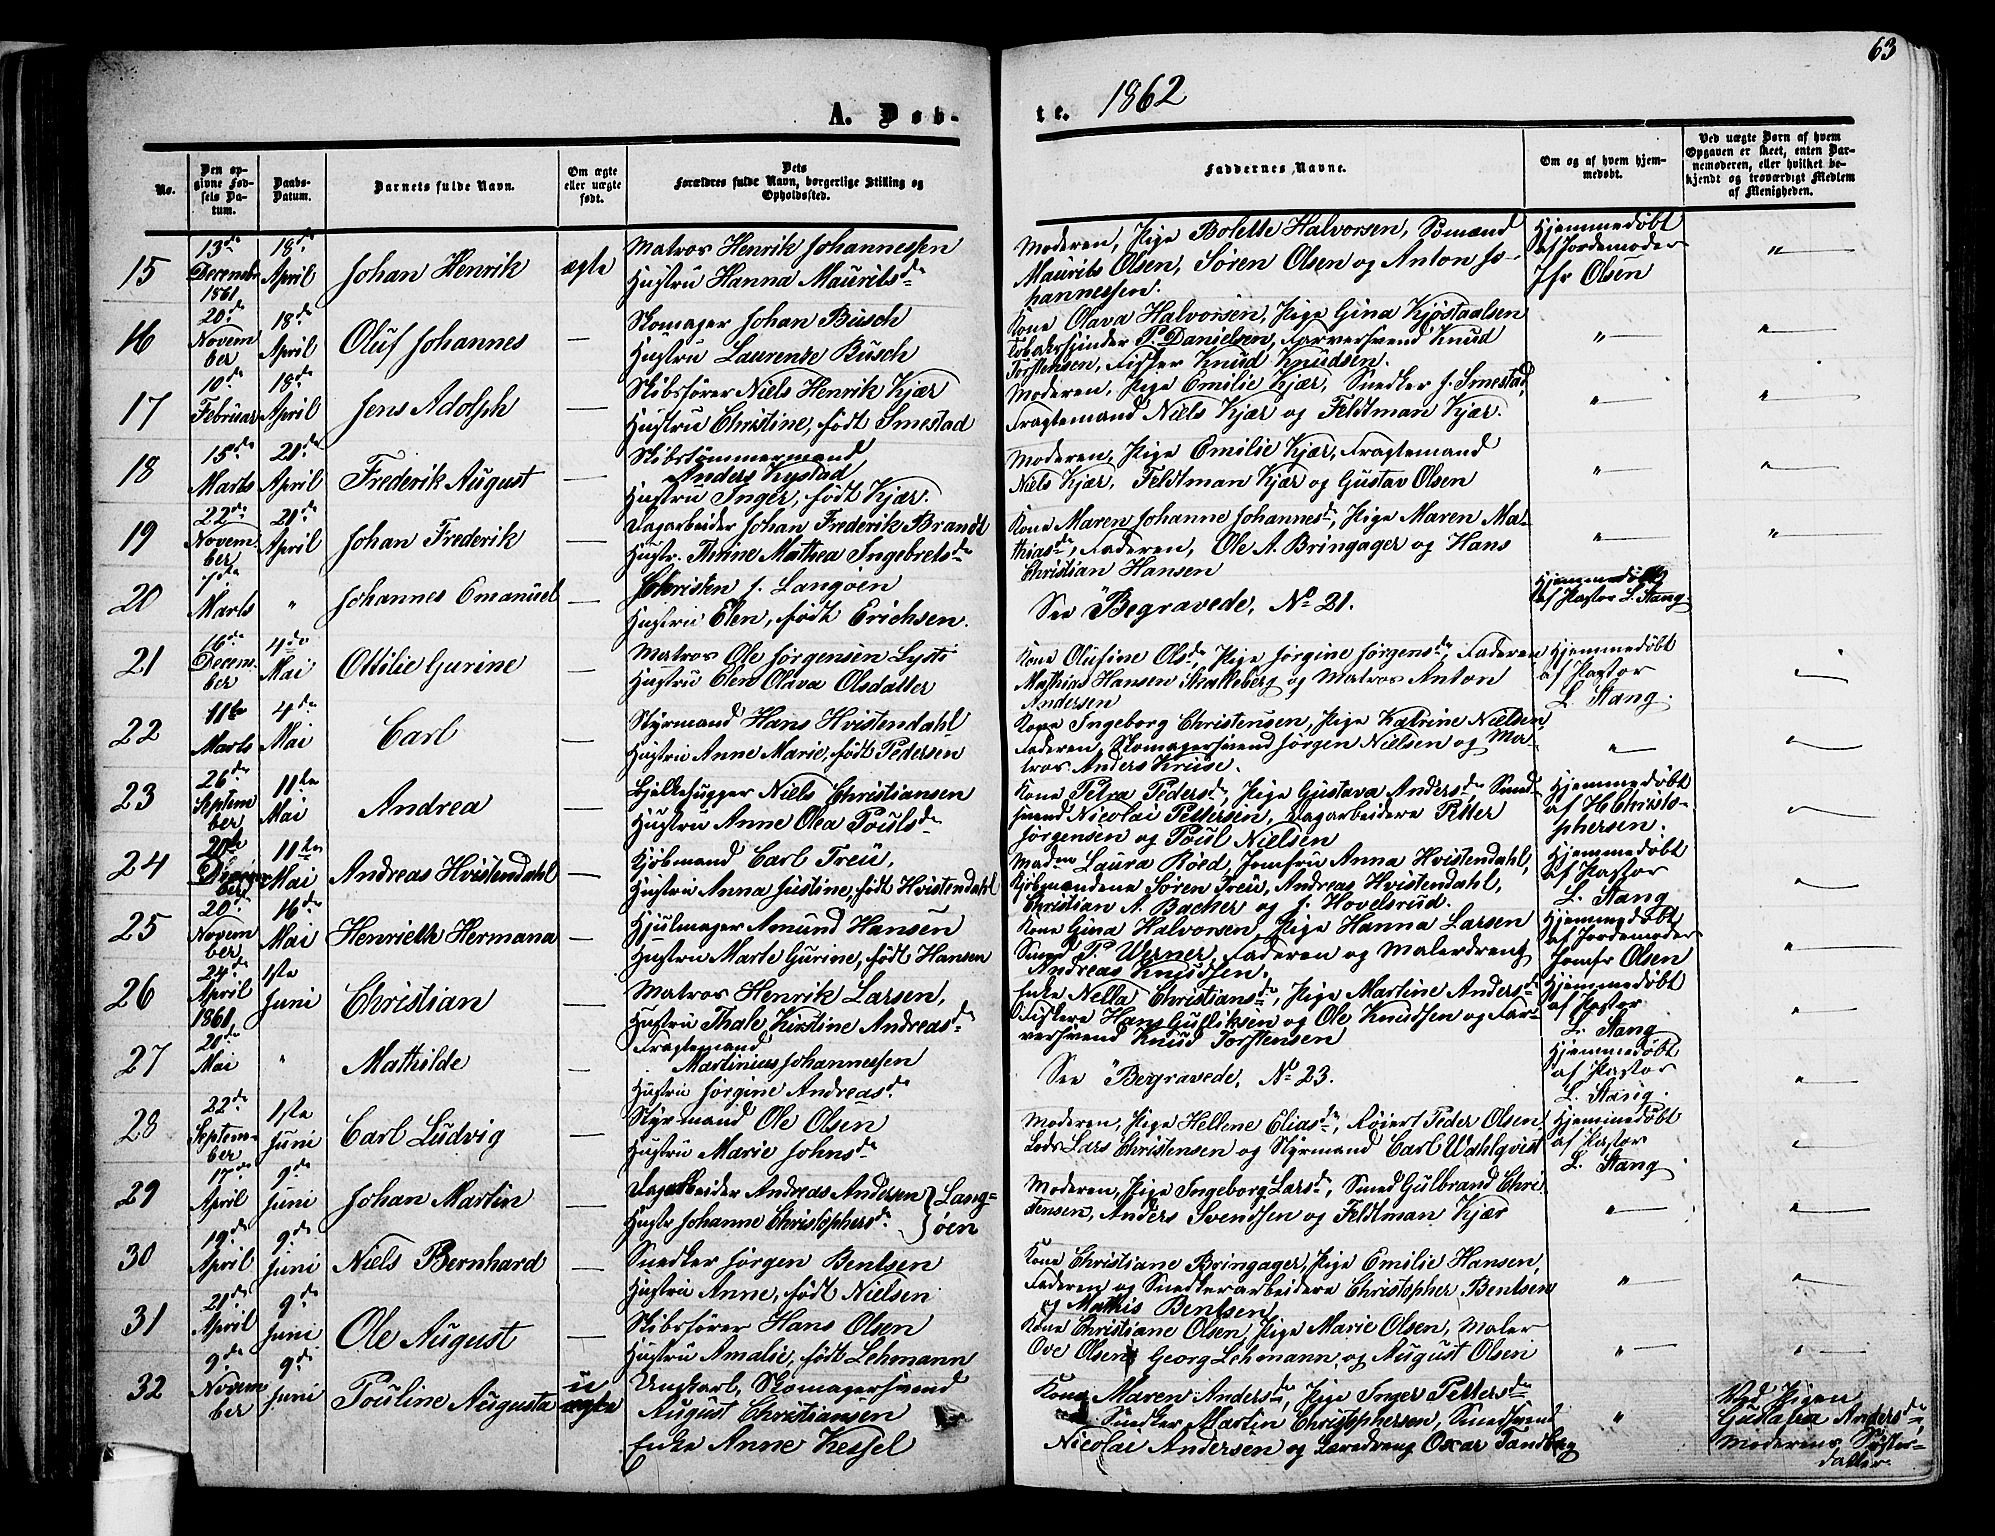 63
A. Døb-
te. 1862
No.
Den op-
givne Fød-
sels Da-
tum.
Daabs-
Datum.
Barnets fulde Navn.
Om ægte
eller uægte
født.
Dets
Forældres fulde Navn, borgerlige Stilling og
Opholdssted.
Faddernes Navne.
Om og af hvem hjem-
medøbt.
Ved uægte Børn af hvem
Opgaven er skeet, enten Bar-
nemoderen, eller hvilket be-
kjendt og troværdigt Medlem
af Menigheden.
15
13de
Decembr
1861
18de
April
Johan Henrik
ægte
Matros Henrik Johannessen
Hustru Hanna Mauritsdr
Moderen, Pige Bolette Halvorsen, Sømænd
Maurits Olsen, Søren Olsen og Anton Jo-
hannessen.
Hjemmedøbt
af Jordemoder
Jfr Olsen
"
16
20de
Novem
ber
18de
April
Oluf Johannes
—
Skomager Johan Busch
Hustru Laurense Busch
Kone Olava Halvorsen, Pige Gina Kjøstaalsen
P. Danielsen, Farversvend Knud
Torstensen, Fisker Knud Knudsen.
"
"
17
10de
Februar
18de
April
Jens Adolph
—
Skibsfører Niels Henrik Kjær
Hustru Christine, født Smestad
Moderen, Pige Emilie Kjær, Snedker J. Smestad,
Fragtemand Niels Kjær og Feldtman Kjær.
"
"
18
15de
Marts
21de
April
Frederik August
—
Skibstømmermand
Anders Kystad
Hustru Inger, født Kjær.
Moderen, Pige Emilie Kjær, Fragtemand
Niels Kjær, Feldtman Kjær og Gustav Olsen
"
"
19
22de
Novem-
ber
21de
April
Johan Frederik
—
Dagarbeider Johan Frederik Brandt
Hustr. Thine Mathea Ingebretsdr
Kone Maren Johanne Johannesdr, Pige Maren Ma-
thiasdr, Faderen, Ole A. Bringager og Hans
Christian Hansen
"
"
20
7de
Marts
"
Johannes Emanuel
—
Christen J. Langøen
Hustru Elen, født Erichsen.
See "Begravede, No 21.
Hjemmedøbt
af Pastor L. Stang.
21
16de
Decem-
ber
4de
Mai
Ottilie Gurine
—
Matros Ole Jørgensen Lysti
Hustru Elen Olava Olsdatter
Kone Olufine Olsdr, Pige Jørgine Jørgensdr, Faderen
Mathias Hansen Skalleberg og Matros Anton
Andersen
Hjemmedøbt
af Pastor
L. Stang.
"
22
11te
Marts
4de
Mai
Carl
—
Styrmand Hans Hvistendahl
Hustru Anne Marie, født Pedersen
Kone Ingeborg Christensen, Pige Katrine Nielsen,
Faderen, Skomagersvend Jørgen Nielsen og Ma-
tros Anders Kruse.
"
"
23
26de
Septem
ber
11te
Mai
Andrea
—
Bjelkehugger Niels Christiansen
Hustru Anne Olea Poulsdr
Kone Petra Pedersdr, Pige Gustava Andersdr, Smed-
svend Nicolai Pettersen, Dagarbeidere Petter
Jørgensen og Poul Nielsen
Hjemmedøbt
af H Christo-
phersen.
"
24
20de
ber
11te
Mai
Andreas Hvistendahl
—
Kjøbmand Carl Treu,
Hustru Anna Justine, født Hvistendahl
Madme Laura Røed, Jomfru Anna Hvistendahl,
Kjøbmændene Søren Treu, Andreas Hvistendahl,
Christian A. Bacher og J. Hovelsrud.
Hjemmedøbt
af Pastor
L. Stang
"
25
20de
Novem
ber
16de
Mai
Henriette Hermana
—
Hjulmager Amund Hansen
Hustru Marte Gurine, født Hansen
Kone Gina Halvorsen, Pige Hanna Larsen
Smed P. Werner, Faderen og Malerdreng
Andreas Knudsen.
Hjemmedøbt
af Jordemoder
Jomfr Olsen
"
26
24de
April
1861
1ste
Juni
Christian
—
Matros Henrik Larsen,
Hustru Thale Kirstine Andreasdr
Enke Nella Christiansdr, Pige Martine Andersdr
Fiskere Hans Gulliksen og Ole Knudsen og Far-
versvend Knud Torstensen
Hjemmedøbt
af Pastor
L. Stang
"
27
21de
Mai
"
Mathilde
—
Fragtemand
Martinius Johannessen
Hustru Jørgine Andreasdr
See "Begravede, No 23.
Hjemmedøbt
af Pastor
L. Stang.
"
28
22de
Septem-
ber
1ste
Juni
Carl Ludvig
—
Styrmand Ole Olsen
Hustru Marie Johnsdr
Moderen, Pige Hellene Eliasdr, Røiert Peder Olsen,
Lods Lars Christensen og Styrmand Carl Wahlqvist
Hjemmedøbt
af Pastor
L. Stang
"
29
17de
April
9de
Juni
Johan Martin
—
Dagarbeider Andreas Andersen
Hustr Johanne Christophersdr.
} Lang-
øen
Moderen, Pige Ingeborg Larsdr, Smed Gulbrand Chri-
stensen, Anders Svendsen og Feldtman Kjær
"
"
30
19de
April
9de
Juni
Niels Bernhard
—
Snedker Jørgen Bentsen
Hustru Anne, født Nielsen
Kone Christiane Bringager, Pige Emilie Hansen,
Faderen og Snedkerarbeidere Christopher Bentsen
og Mathis Bentsen
"
"
31
21de
April
9de
Juni
Ole August
—
Skibsfører Hans Olsen
Hustru Amalie, født Lehmann
Kone Christiane Olsen, Pige Marie Olsen, Maler
Ove Olsen, Georg Lehmann og August Olsen
"
"
32
9de
Novem
ber
9de
Juni
Pouline Augusta
u
ægte
Ungkarl, Skomagersvend
August Christiansen
Enke Anne Kessel
Kone Maren Andersdr, Pige Inger Pettersdr
Snedker Martin Christophersen, Smedsvend
Nicolai Andersen og Læredreng Oscar Tandberg
"
Ved Pigen
Gustava Andersdr
Moderens Søster-
datter